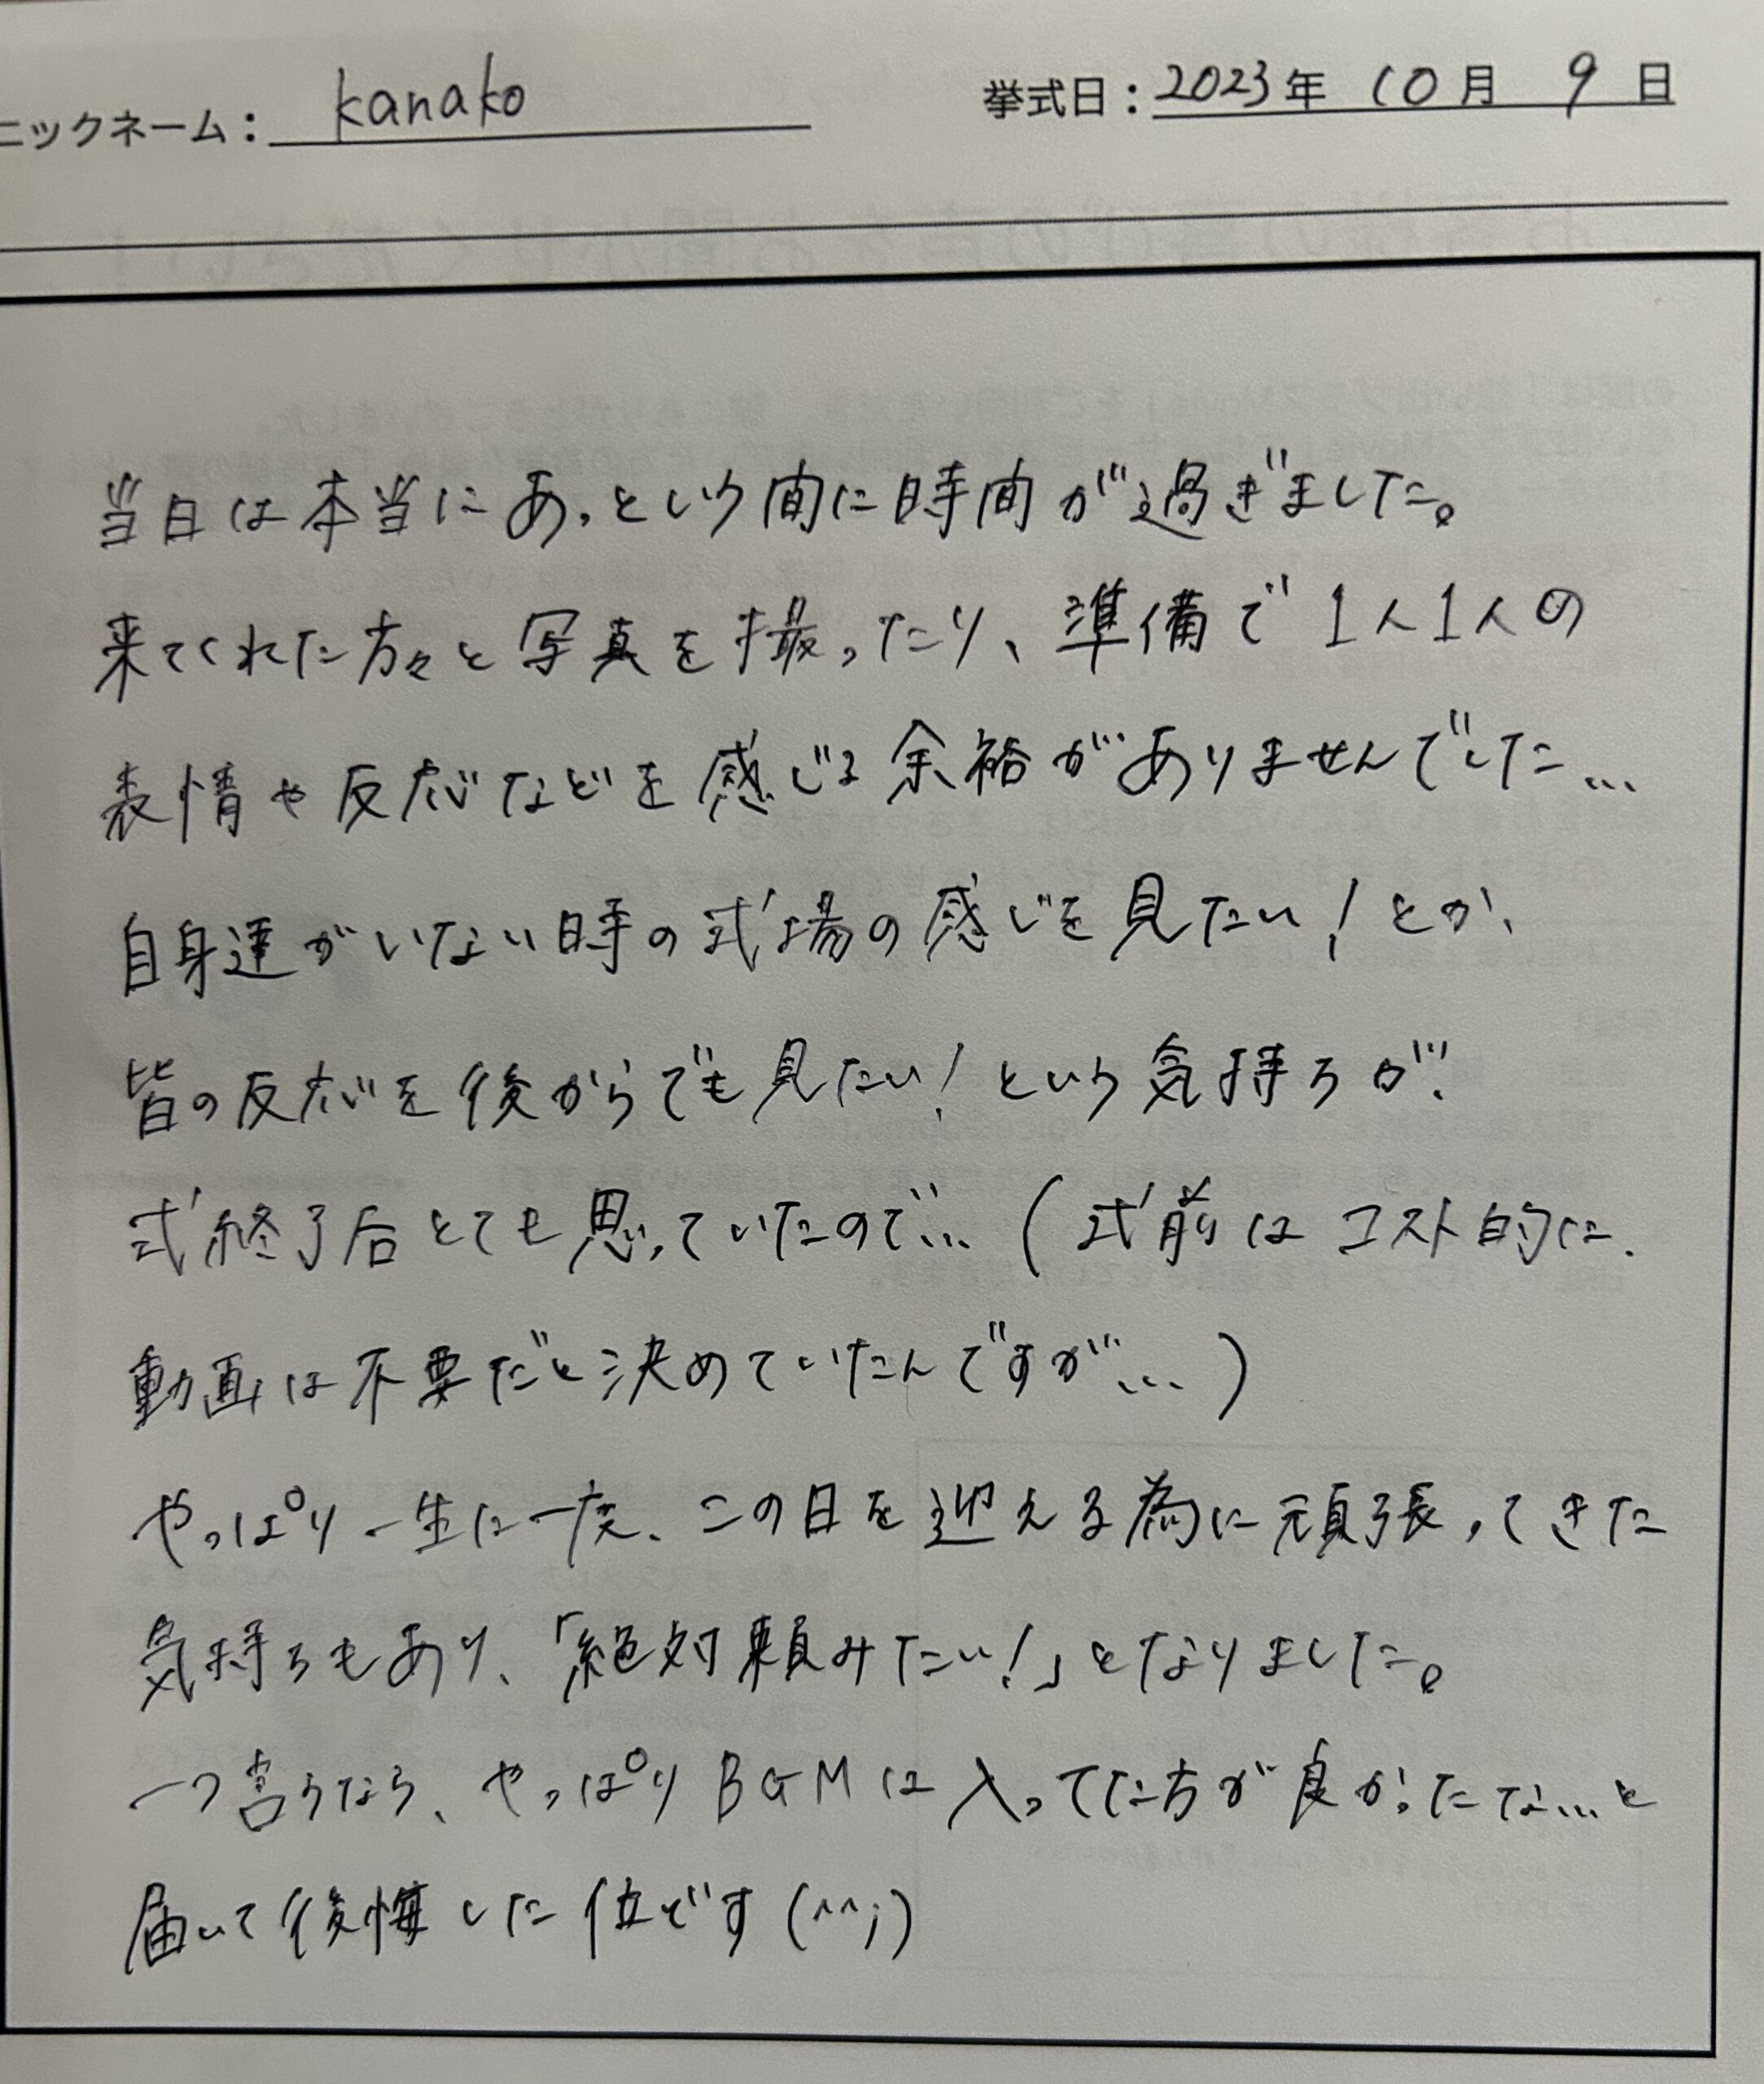 ニックネーム： kanako 挙式日：2023年 10月 9日
当日は本当にあっという間に時間が過ぎました。
来てくれた方々と写真を撮ったり、準備で1人1人の
表情や反応などを感じる余裕がありませんでした…
自身達がいない時の式場の感じを見たい！とか、
皆の反応を後からでも見たい！という気持ちが、
式終了后とても思っていたので…（式前はコスト的に、
動画は不要だと決めていたんですが…）
やっぱり一生に一度、この日を迎える為に頑張ってきた
気持ちもあり、「絶対頼みたい！」となりました。
一つ言うなら、やっぱりBGMは入ってた方が良かったな…と
届いて後悔した位です(^^;)